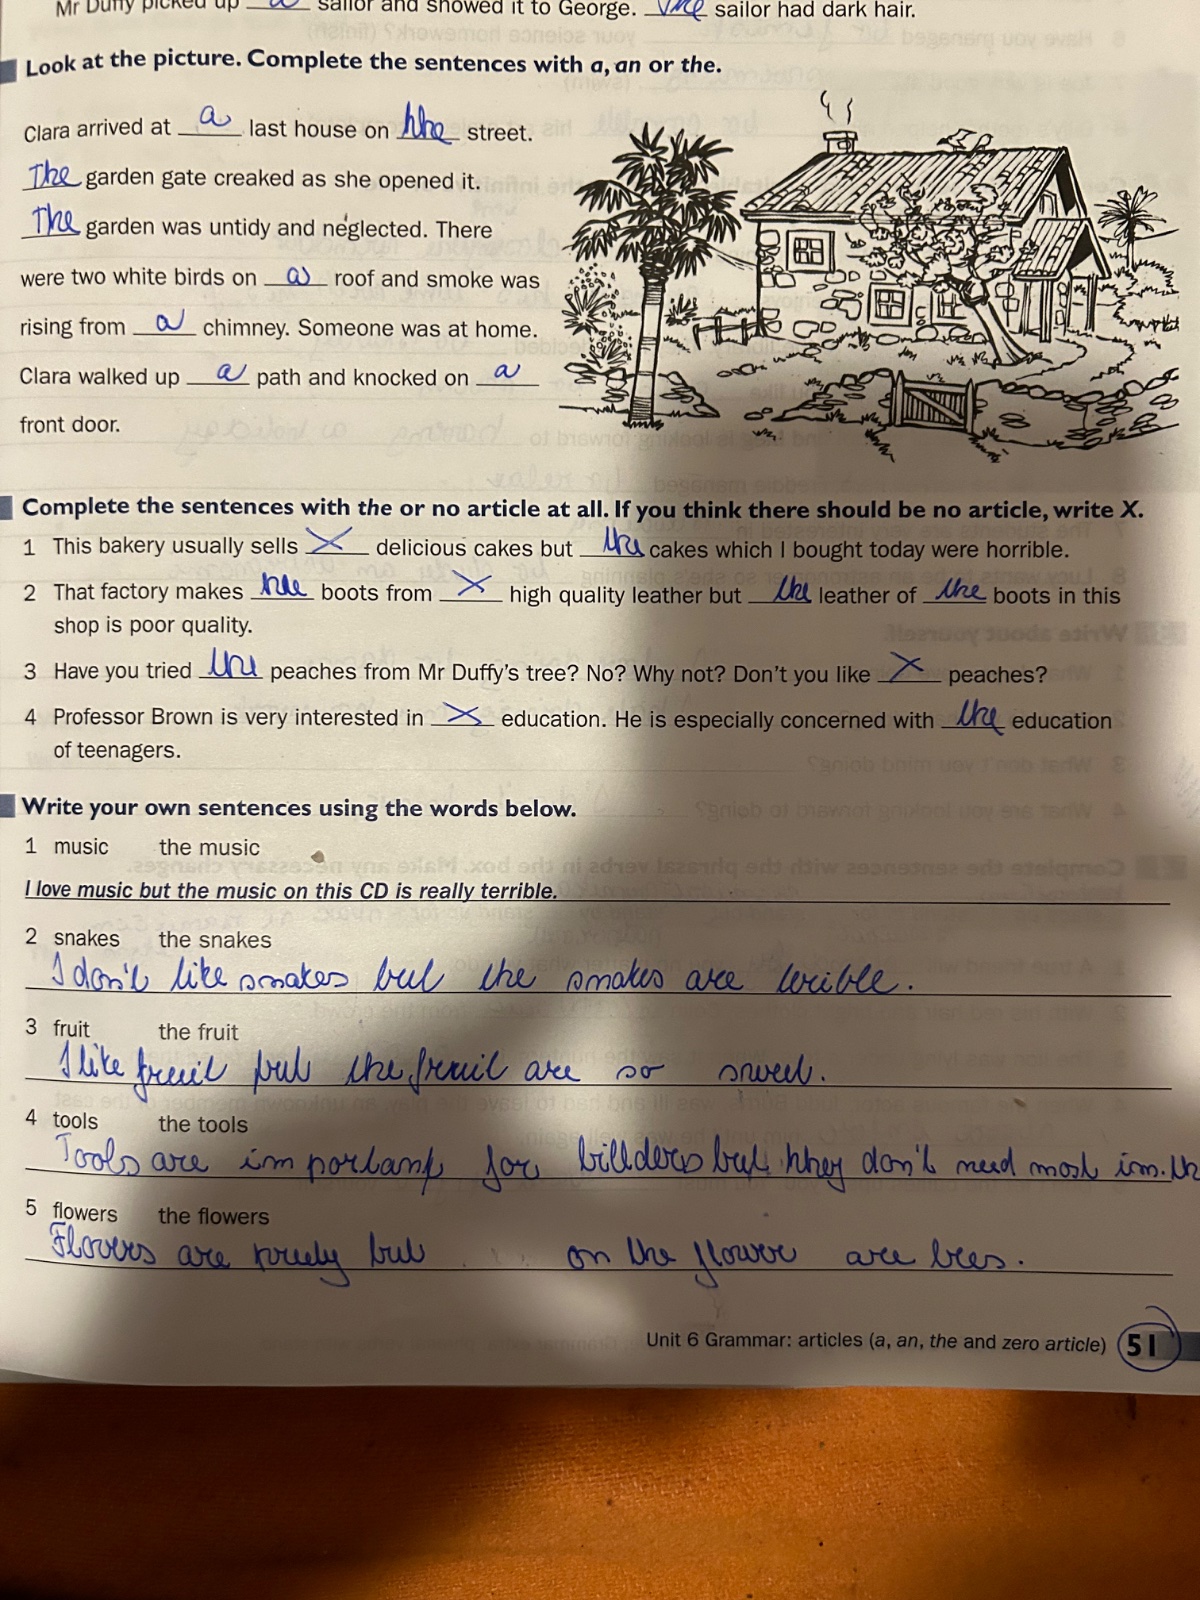 Mr Duffy picked up a sailor and showed it to George. The sailor had dark hair.
Look at the picture. Complete the sentences with a, an or the.
Clara arrived at a last house on the street.
The garden gate creaked as she opened it.
The garden was untidy and neglected. There
were two white birds on a roof and smoke was
rising from a chimney. Someone was at home.
Clara walked up a path and knocked on a
front door.
Complete the sentences with the or no article at all. If you think there should be no article, write X.
1 This bakery usually sells X delicious cakes but the cakes which I bought today were horrible.
2 That factory makes the boots from X high quality leather but the leather of the boots in this
shop is poor quality.
3 Have you tried the peaches from Mr Duffy's tree? No? Why not? Don't you like X peaches?
4 Professor Brown is very interested in X education. He is especially concerned with the education
of teenagers.
Write your own sentences using the words below.
1 music the music
I love music but the music on this CD is really terrible.
2 snakes the snakes
I don't like snakes but the snakes are terible.
3 fruit the fruit
I like fruit but the fruit are so sweet.
4 tools the tools
Tools are important for billders but they don't need most im.
5 flowers the flowers
Flowers are but on the flower are bees.
Unit 6 Grammar: articles (a, an, the and zero article) 51